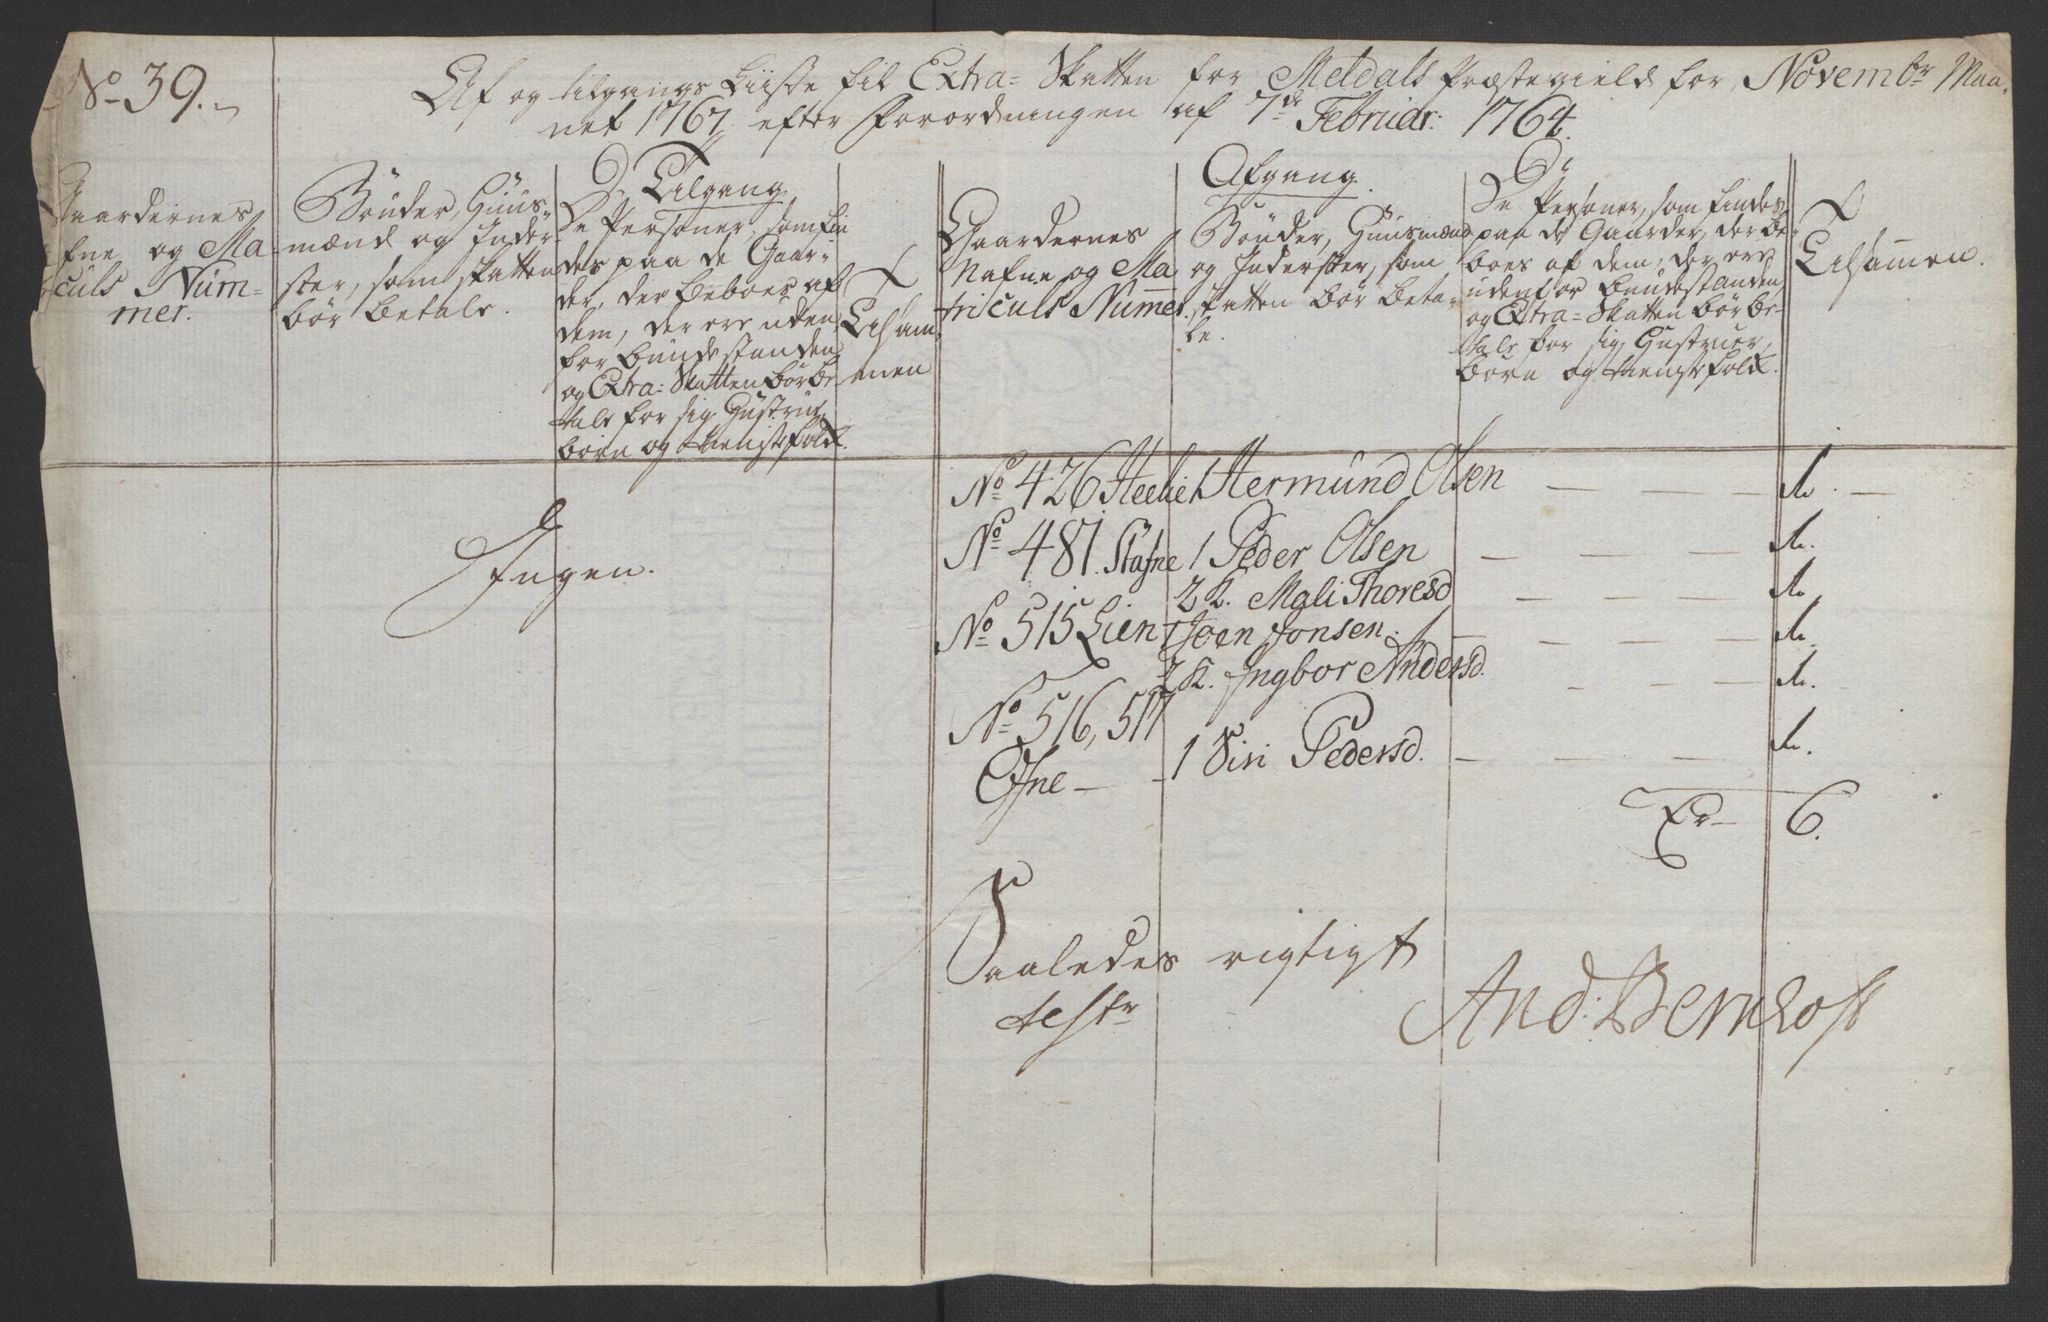 No 39.
Af og tilgangs Liiste til Extra= Skatten for Meldals Præstegield for Novembr Maa-
net 1767 efter Forordningen af 7de Februar: 1764.
Gaardernes
Nafne og Ma-
triculs Num=
mer.
Bönder, Huus-
mænd og Inder-
ster, som skatten
bör betale.
Tilgang
De Personer, som fin
des paa de Gaar-
der, der beboes af
dem, der ere uden
for bundestanden
og Extra= Skatten bör be
tale for sig Hustruer,
börn og tienistefolk.
Tilsam
men
Afgang.
Gaardernes
Nafne og Ma
triculs Numer.
Bönder, Huusmænd
og Inderster, som
skatten bör beta-
le.
De Personer, som findes
paa de Gaarder, der be-
boes af dem, der ere
udenfor bundestanden
og Extra= Skatten bör be-
tale for sig, Hustruer,
börn og tienistefolk.
Tilsamen.
Ingen.
No 426 1 Hermund Olsen — — —
No 481. Stafne 1 Peder Olsen — — —
2 K. Mali Thoresd — — —
No 515 Lien 1 Joen Jonsen. — — —
2 K. Ingbor Andersd. — — —
No 516, 517
Efne — 1 Siri Pedersd. — — —
Er 6.
Saaledes rigtigt
testr
And: Bernhoft